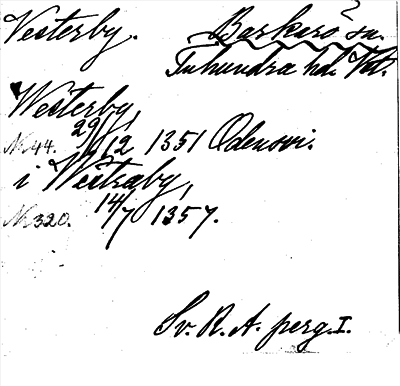 Vesterby. Barkarö sn.
Tuhundra hd. Vstm.
Westerby,
N. 44. 29/12 1351 Odensvi.
i Westraby,
N. 320. 14/7 1357.
Sv. R. A. perg. I.